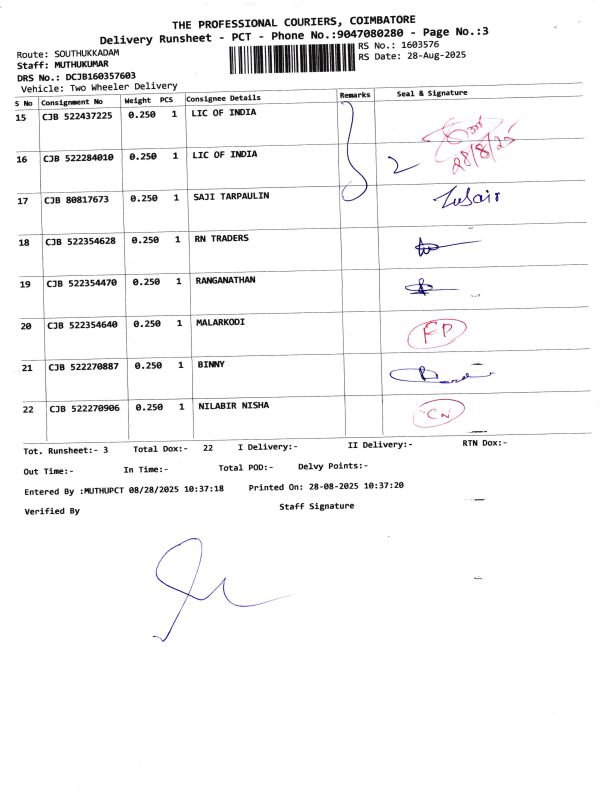 THE PROFESSIONAL COURIERS, COIMBATORE
Delivery Runsheet - PCT - Phone No.:9047080280 - Page No.:3
Route: SOUTHUKKADAM
RS No.: 1603576
Staff: MUTHUKUMAR
RS Date: 28-Aug-2025
DRS No.: DCJB160357603
Vehicle: Two Wheeler Delivery
S No Consignment No Weight PCS Consignee Details Remarks Seal & Signature
15 CJB 522437225 0.250 1 LIC OF INDIA
28/8/25
16 CJB 522284010 0.250 1 LIC OF INDIA 2
17 CJB 80817673 0.250 1 SAJI TARPAULIN
18 CJB 522354628 0.250 1 RN TRADERS
19 CJB 522354470 0.250 1 RANGANATHAN
20 CJB 522354640 0.250 1 MALARKODI FP
21 CJB 522270887 0.250 1 BINNY
22 CJB 522270906 0.250 1 NILABIR NISHA CN
Tot. Runsheet:- 3 Total Dox:- 22 I Delivery:- II Delivery:- RTN Dox:-
Out Time:- In Time:- Total POD:- Delvy Points:-
Entered By :MUTHUPCT 08/28/2025 10:37:18 Printed On: 28-08-2025 10:37:20
Verified By Staff Signature